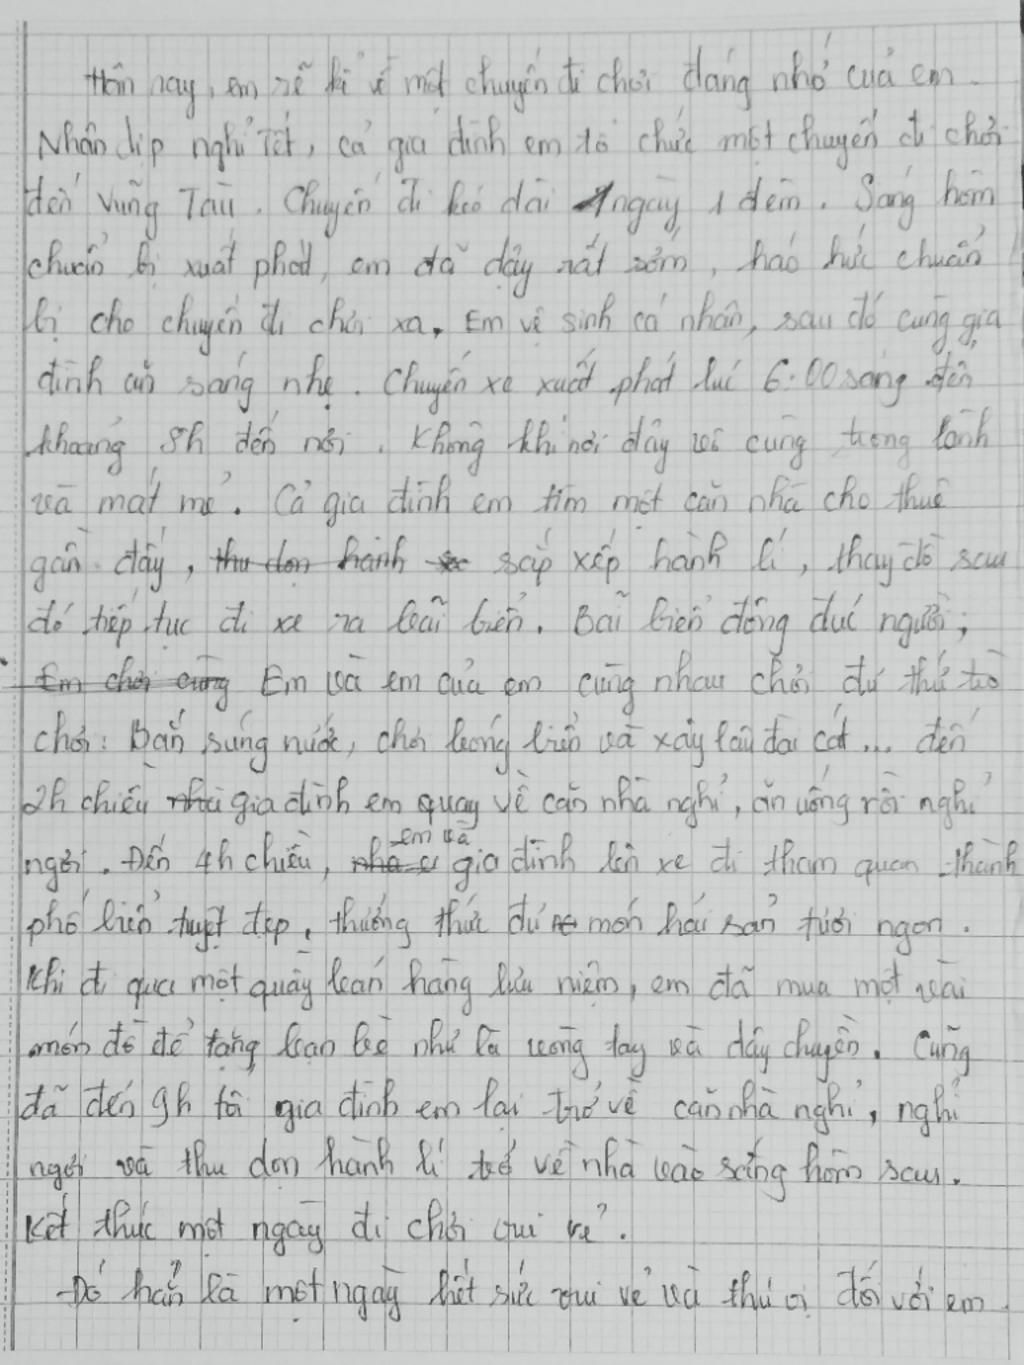 Hôm nay, em sẽ kể về một chuyến đi chơi đáng nhớ của em.
Nhân dịp nghỉ Tết, cả gia đình em tổ chức một chuyến đi chơi
đến Vũng Tàu. Chuyến đi kéo dài 1 ngày 1 đêm. Sáng hôm
chuẩn bị xuất phát, em đã dậy rất sớm, háo hức chuẩn
bị cho chuyến đi chơi xa. Em vệ sinh cá nhân, sau đó cùng gia
đình ăn sáng nhẹ. Chuyến xe xuất phát lúc 6:00 sáng đến
khoảng 8h đến nơi. Không khí nơi đây vô cùng trong lành
và mát mẻ. Cả gia đình em tìm một căn nhà cho thuê
gần đấy, thu dọn hành sắp xếp hành lí, thay đồ sau
đó tiếp tục đi xe ra bãi biển. Bãi biển đông đúc người;
Em chơi cùng Em và em của em cùng nhau chơi đủ thứ trò
chơi: Bắn súng nước, chơi bóng biển và xây lâu đài cát... đến
2h chiều gia đình em quay về căn nhà nghỉ, ăn uống rồi nghỉ
ngơi. Đến 4h chiều, em và gia đình lên xe đi tham quan thành
phố biển tuyệt đẹp, thưởng thức đủ món hải sản tươi ngon.
Khi đi qua một quầy bán hàng lưu niệm, em đã mua một vài
món đồ để tặng bạn bè như là vòng tay và dây chuyền. Cũng
đã đến 9h tối gia đình em lại trở về căn nhà nghỉ, nghỉ
ngơi và thu dọn hành lí trở về nhà vào sáng hôm sau.
Kết thúc một ngày đi chơi vui vẻ.
Đó hẳn là một ngày hết sức vui vẻ và thú vị đối với em.